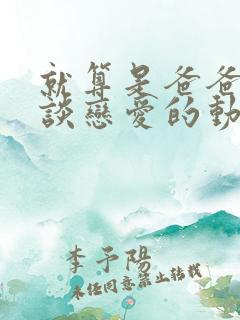 就算是爸爸
談戀愛的動
李予陽
未经同意禁止转载